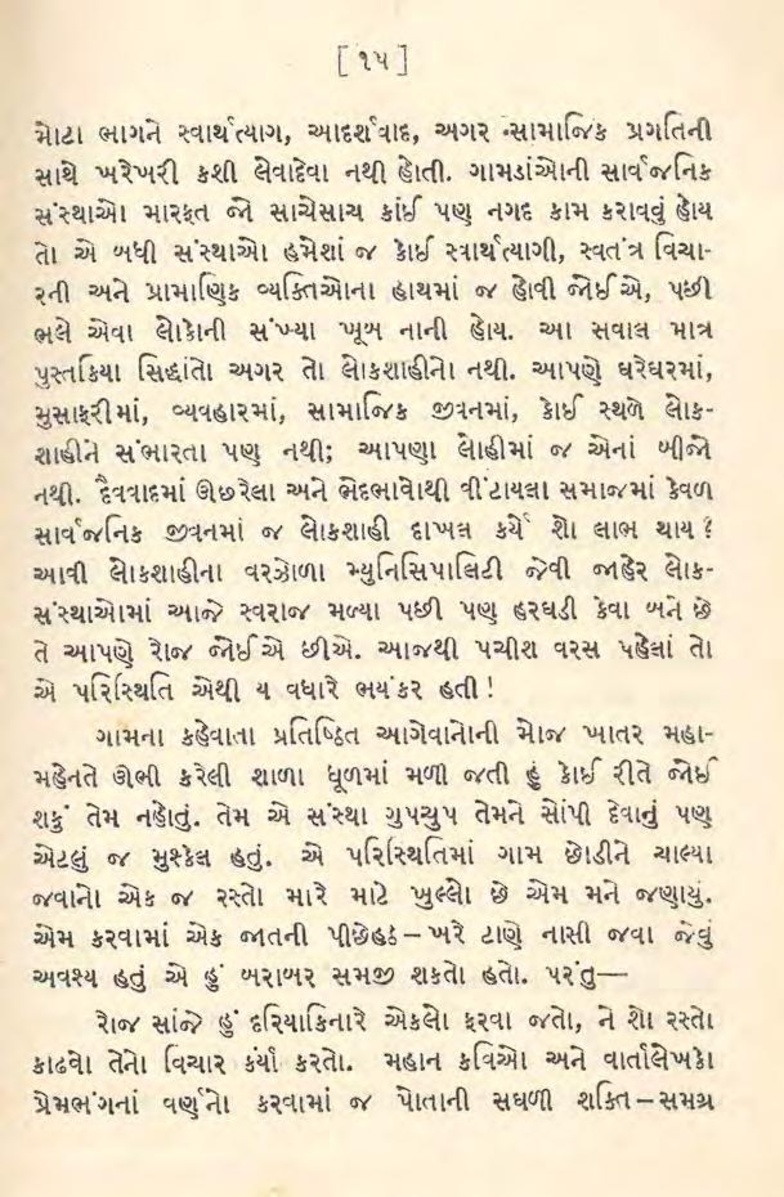 [ ૧૫ ]
મોટા ભાગને સ્વાર્થત્યાગ, આદર્શવાદ, અગર સામાજિક પ્રગતિની
સાથે ખરેખરી કશી લેવાદેવા નથી હોતી. ગામડાંઓની સાર્વજનિક
સંસ્થાઓ મારફત જો સાચેસાચ કાંઈ પણ નગદ કામ કરાવવું હોય
તો એ બધી સંસ્થાઓ હમેશાં જ કોઈ સ્વાર્થત્યાગી, સ્વતંત્ર વિચા-
રની અને પ્રામાણિક વ્યક્તિઓના હાથમાં જ હોવી જોઈએ, પછી
ભલે એવા લોકોની સંખ્યા ખૂબ નાની હોય. આ સવાલ માત્ર
પુસ્તકિયા સિદ્ધાંતો અગર તો લોકશાહીનો નથી. આપણે ઘરેઘરમાં,
મુસાફરીમાં, વ્યવહારમાં, સામાજિક જીવનમાં, કોઈ સ્થળે લોક-
શાહીને સંભારતા પણ નથી; આપણા લોહીમાં જ એનાં બીજો
નથી. દૈવવાદમાં ઊછરેલા અને ભેદભાવોથી વીંટાયલા સમાજમાં કેવળ
સાર્વજનિક જીવનમાં જ લોકશાહી દાખલ કર્યે શો લાભ થાય ?
આવી લોકશાહીના વરઝોળા મ્યુનિસિપાલિટી જેવી જાહેર લોક-
સંસ્થાઓમાં આજે સ્વરાજ મળ્યા પછી પણ હરઘડી કેવા બને છે
તે આપણે રોજ જોઈએ છીએ. આજથી પચીશ વરસ પહેલાં તો
એ પરિસ્થિતિ એથી ય વધારે ભયંકર હતી !
ગામના કહેવાતા પ્રતિષ્ઠિત આગેવાનોની મોજ ખાતર મહા-
મહેનતે ઊભી કરેલી શાળા ધૂળમાં મળી જતી હું કોઈ રીતે જોઈ
શકું તેમ નહોતું. તેમ એ સંસ્થા ગુપચુપ તેમને સોંપી દેવાનું પણ
એટલું જ મુશ્કેલ હતું. એ પરિસ્થિતિમાં ગામ છોડીને ચાલ્યા
જવાનો એક જ રસ્તો મારે માટે ખુલ્લો છે એમ મને જણાયું.
એમ કરવામાં એક જાતની પીછેહઠ – ખરે ટાણે નાસી જવા જેવું
અવશ્ય હતું એ હું બરાબર સમજી શકતો હતો. પરંતુ—
રોજ સાંજે હું દરિયાકિનારે એકલો ફરવા જતો, ને શો રસ્તો
કાઢવો તેનો વિચાર કર્યા કરતો. મહાન કવિઓ અને વાર્તાલેખકો
પ્રેમભંગનાં વર્ણનો કરવામાં જ પોતાની સઘળી શક્તિ – સમગ્ર